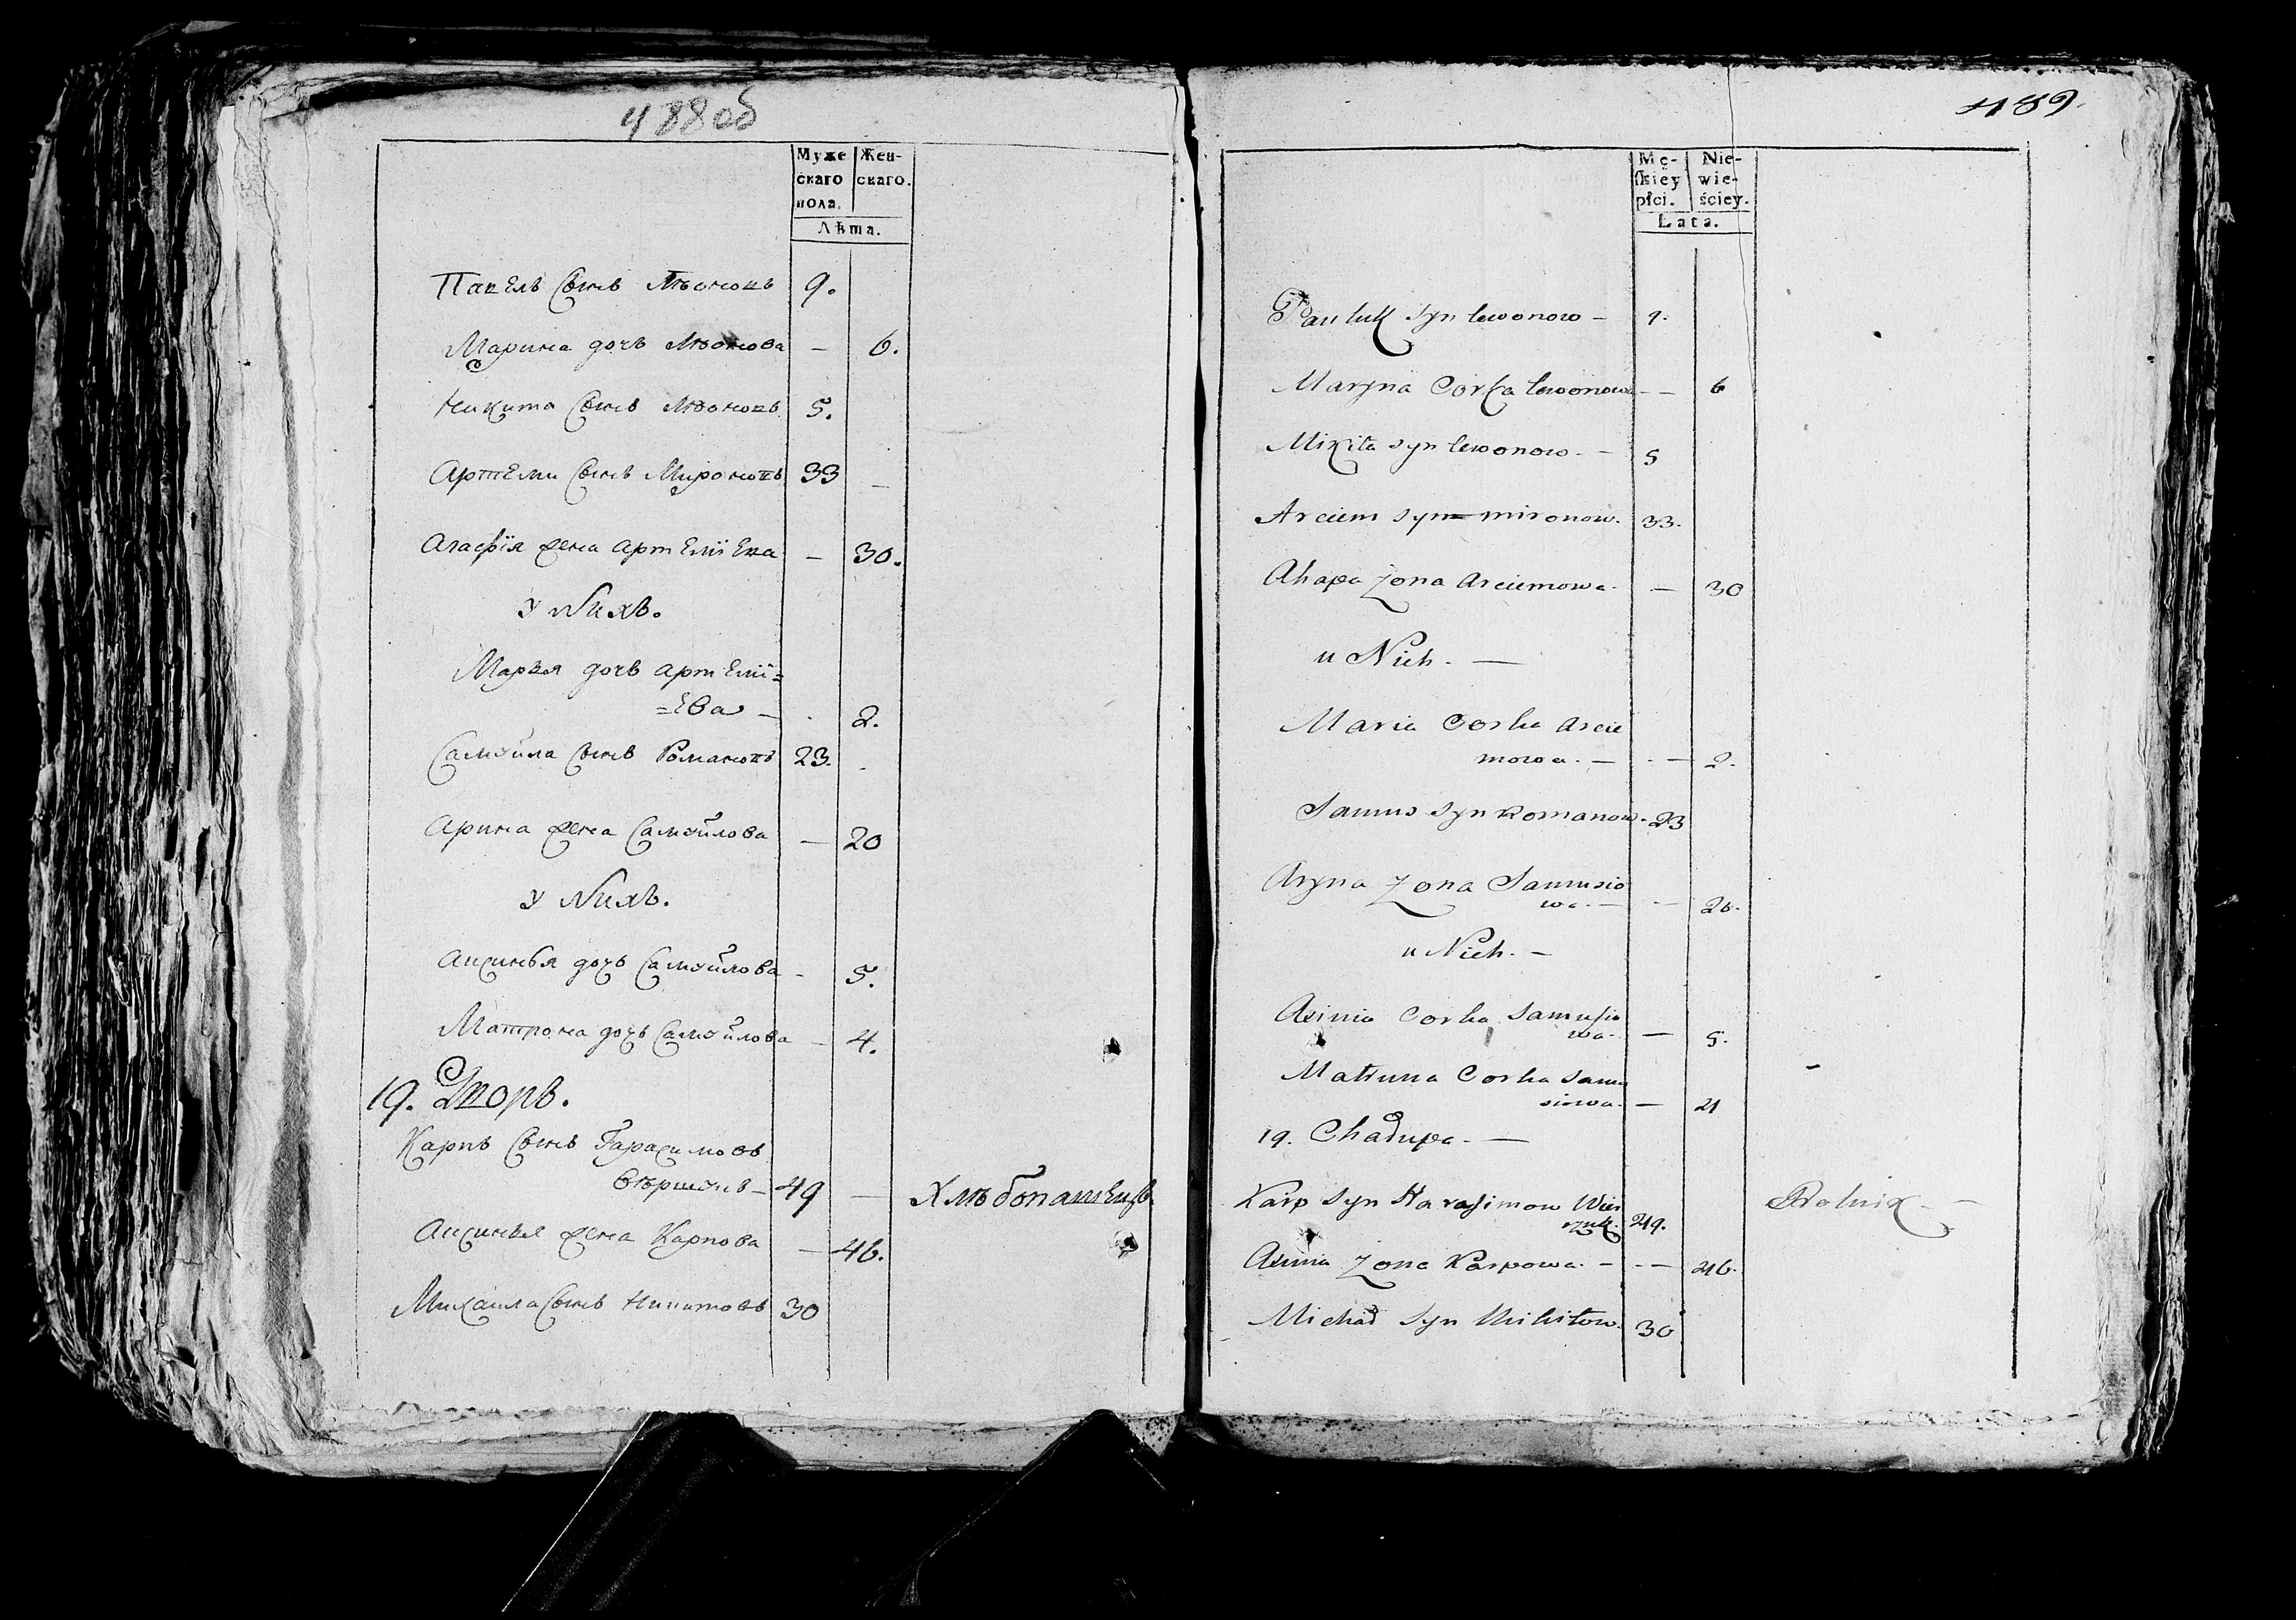 488об
Муже Жен-
скаго скаго.
пола.
Лѣта.
Павелъ Сынъ Лѣоновъ 9.
Марина дочь Лѣонова — 6.
Никита Сынъ Лѣоновъ 5.
Артеми Сынъ Мироновъ 33 —
Агафія жена Артеміева — 30.
У Нихъ.
Марья дочь Артемі=
=ева — 2.
Самуйла Сынъ Романовъ 23.
Арина жена Самуйлова — 20
У Нихъ.
Аксинья дочь Самуйлова — 5.
Матрона дочь Самуйлова — 4.
19. Дворъ.
Карпъ Сынъ Гарасимовъ
Вѣршукъ — 49 — Хлѣбопашецъ
Аксинья жена Карпова — 46.
Михаила Сынъ Никитовъ 30
489.
Mę- Nie-
ſkiey wie-
płci. ściey.
Lata.
Pauluk Syn Lewonow — 9.
Maryna Corka Lewonowa — — 6
Mikita Syn Lewonow. — 5
Arciem Syn mironow. 33.
Ahapa Zona Arciemowa. — 30
u Nich. —
Maria Corka Arcie
mowa. — — 2.
Samus Syn Romanow. 23
Aryna Zona Samusio
wa. — — 20.
u Nich. —
Axinia Corka Samusio
wa. — 5.
Matruna Corka Samu
siowa. — 4
19. Chałupa. —
Karp Syn Harasimow Wier
szuk. 49. Rolnik —
Axinia Zona Karpowa. — — 46.
Michał Syn Mikitow. 30